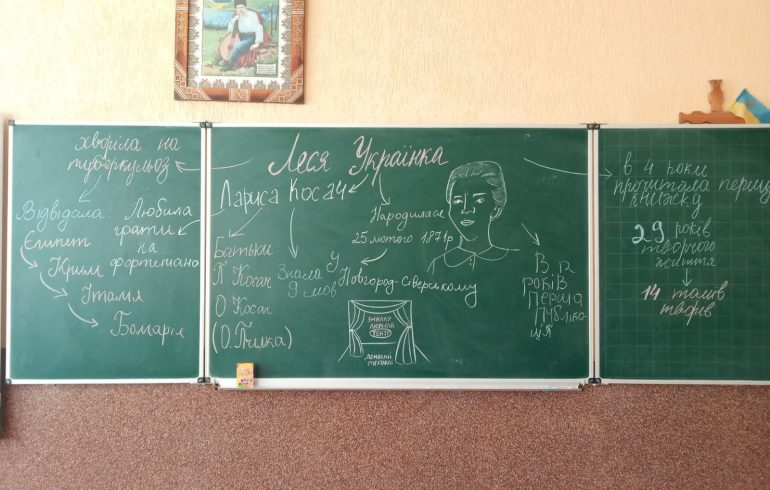 хворіла на
туберкульоз
Відвідала:
Єгипет
Крим
Італія
Болгарія
Любила
грати
на
фортепіано
Леся Українка
Лариса Косач
Батьки
П Косач
О Косач
(О. Пчілка)
Знала
9 мов
Народилася
25 лютого 1871р
У
Новгород-Сіверському
ЗМАЛКУ
ЛЮБИЛА
ТЕАТР
ДОМАШНІ
В 12
років
Перша
Публіка-
ція
в 4 роки
прочитала першу
книжку
29 років
творчого
життя
14 томів
творів